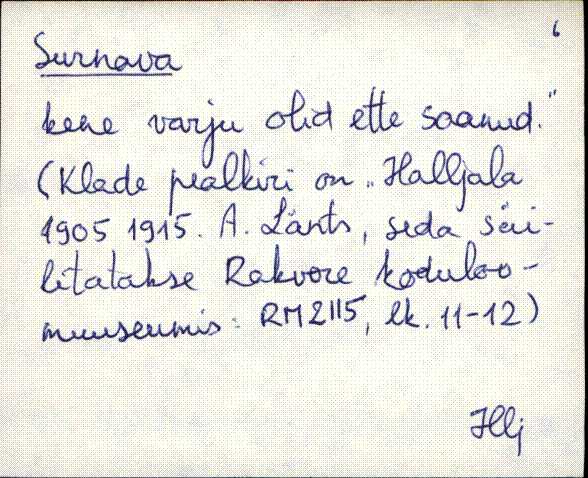 6
Surnava
kene varju olid ette saanud."
(Klade pealkiri on „Haljala
1905 1915. A. Länts, seda säi-
litatakse Rakvere koduloo-
muuseumis: RM 2115, lk. 11-12)
Hlj